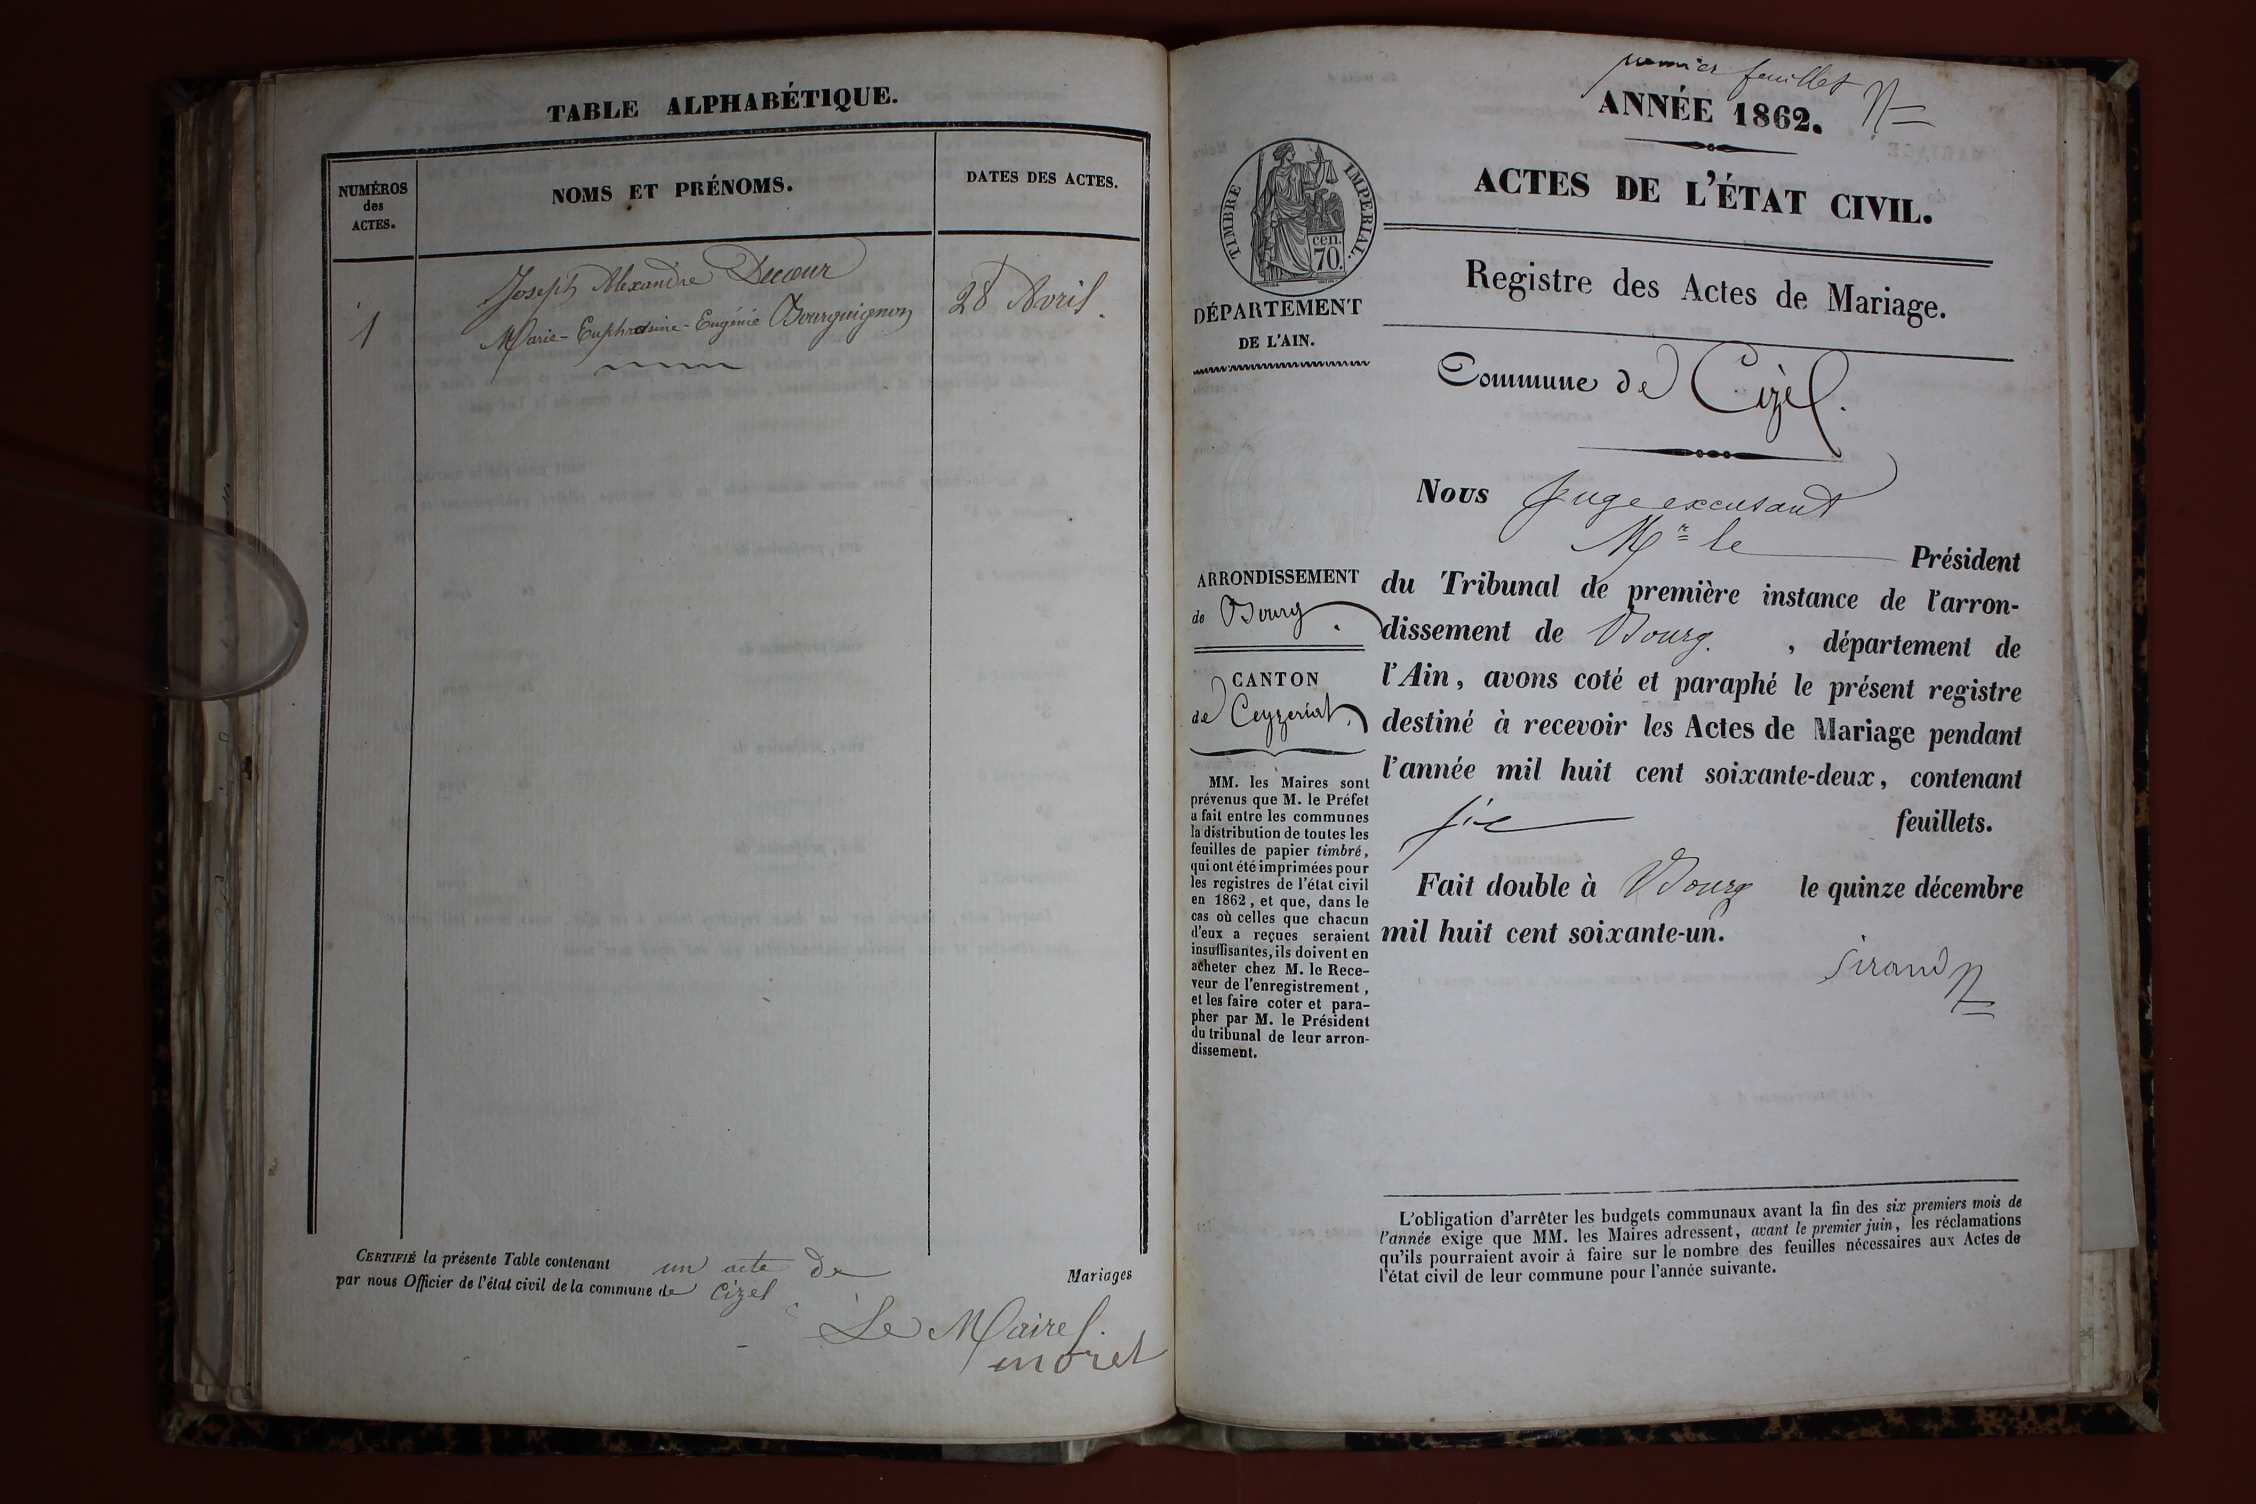 TABLE ALPHABÉTIQUE.
NUMÉROS
des
ACTES.
NOMS ET PRÉNOMS.
DATES DES ACTES.
1
Joseph Alexandre Decœur
Marie-Euphrosine-Eugénie Bourguignon
28 Avril.
CERTIFIÉ la présente Table contenant un acte de Mariages
par nous Officier de l'état civil de la commune de Cizel
Le Maire
moret
premier feuillet
ANNÉE 1862.
ACTES DE L'ÉTAT CIVIL.
TIMBRE IMPÉRIAL.
cen.
70.
DÉPARTEMENT
DE L'AIN.
Registre des Actes de Mariage.
Commune de Cizel.
ARRONDISSEMENT
de Bourg.
CANTON
de Ceyzeriat.
MM. les Maires sont
prévenus que M. le Préfet
a fait entre les communes
la distribution de toutes les
feuilles de papier timbré,
qui ont été imprimées pour
les registres de l'état civil
en 1862, et que, dans le
cas où celles que chacun
d'eux a reçues seraient
insuffisantes, ils doivent en
acheter chez M. le Rece-
veur de l'enregistrement,
et les faire coter et para-
pher par M. le Président
du tribunal de leur arron-
dissement.
Nous juge excusant
Mr le Président
du Tribunal de première instance de l'arron-
dissement de Bourg. , département de
l'Ain, avons coté et paraphé le présent registre
destiné à recevoir les Actes de Mariage pendant
l'année mil huit cent soixante-deux, contenant
six feuillets.
Fait double à Bourg le quinze décembre
mil huit cent soixante-un.
Sirand
L'obligation d'arrêter les budgets communaux avant la fin des six premiers mois de
l'année exige que MM. les Maires adressent, avant le premier juin, les réclamations
qu'ils pourraient avoir à faire sur le nombre des feuilles nécessaires aux Actes de
l'état civil de leur commune pour l'année suivante.